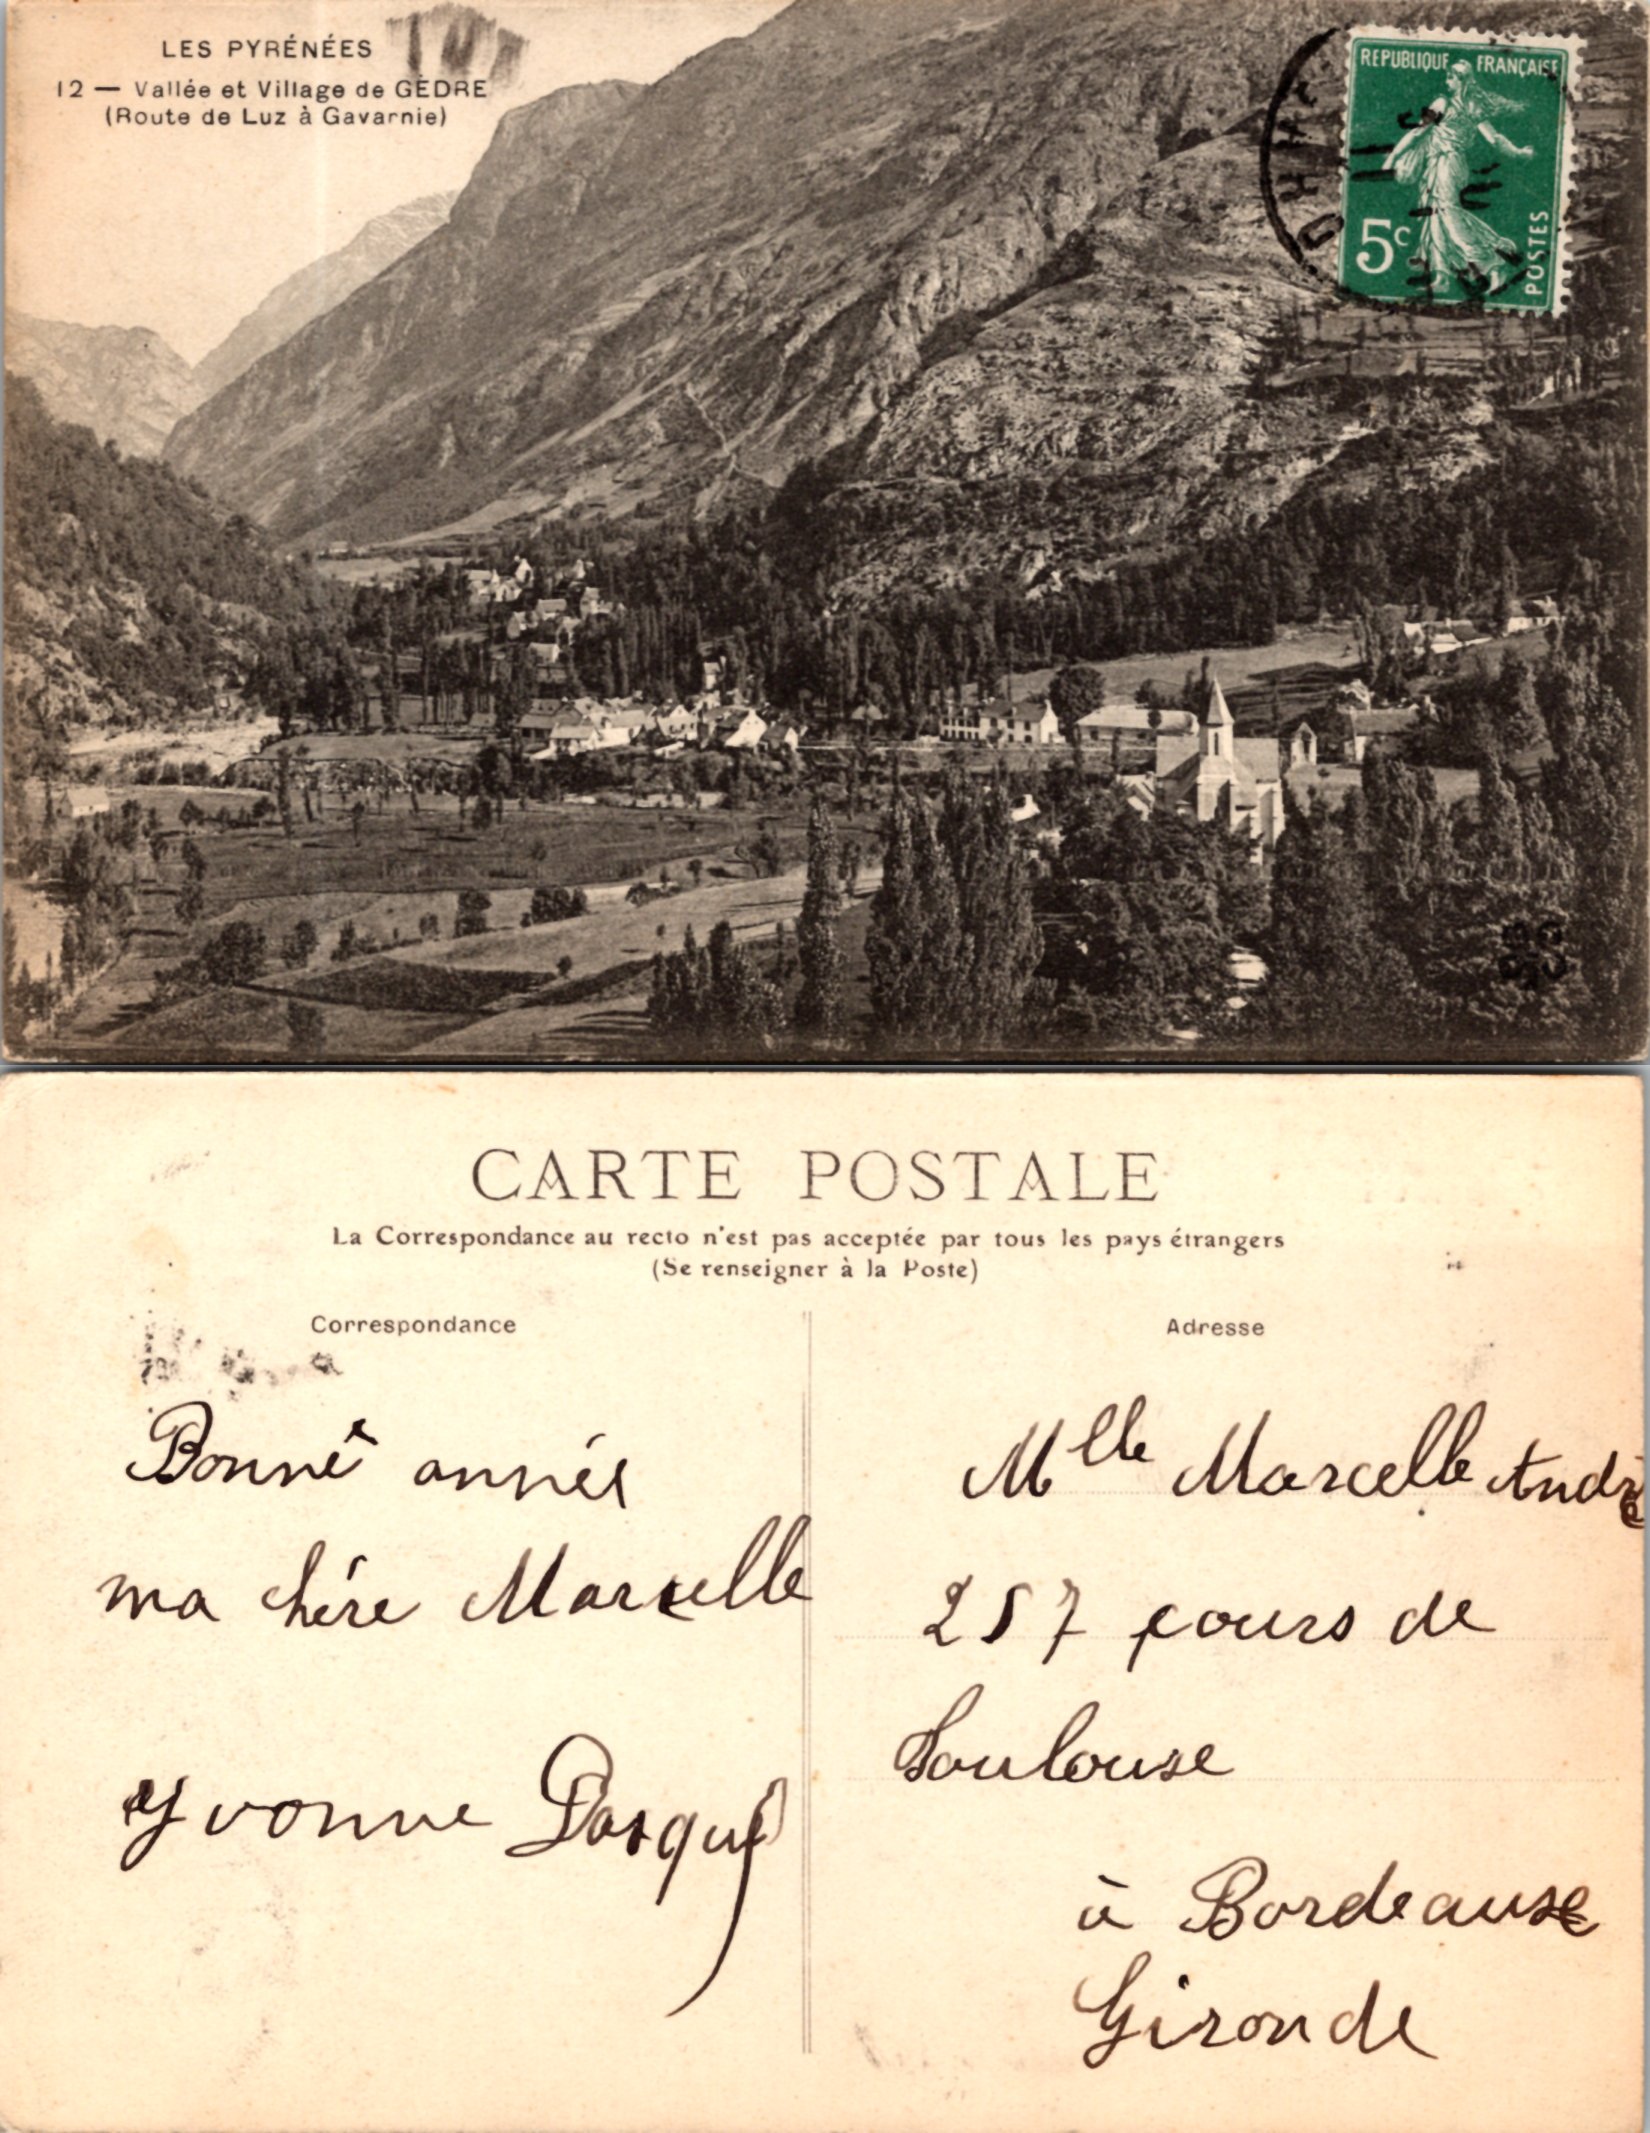 LES PYRÉNÉES
12 — Vallée et Village de GÈDRE
(Route de Luz à Gavarnie)
REPUBLIQUE FRANÇAISE
5c
POSTES
CARTE POSTALE
La Correspondance au recto n'est pas acceptée par tous les pays étrangers
(Se renseigner à la Poste)
Correspondance
Adresse
Bonne année
ma chère Marcelle
Yvonne
Mlle Marcelle André
257 cours de
Toulouse
à Bordeause
Gironde